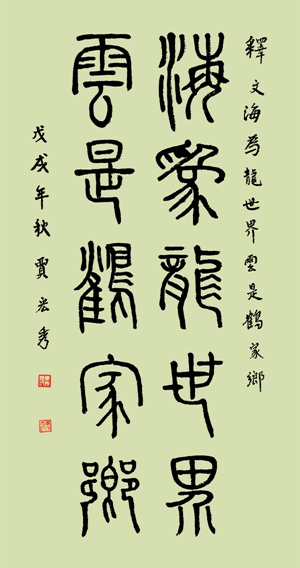 釋文海為龍世界雲是鶴家鄉
海為龍世界
雲是鶴家鄉
戊戌年秋賈宏秀